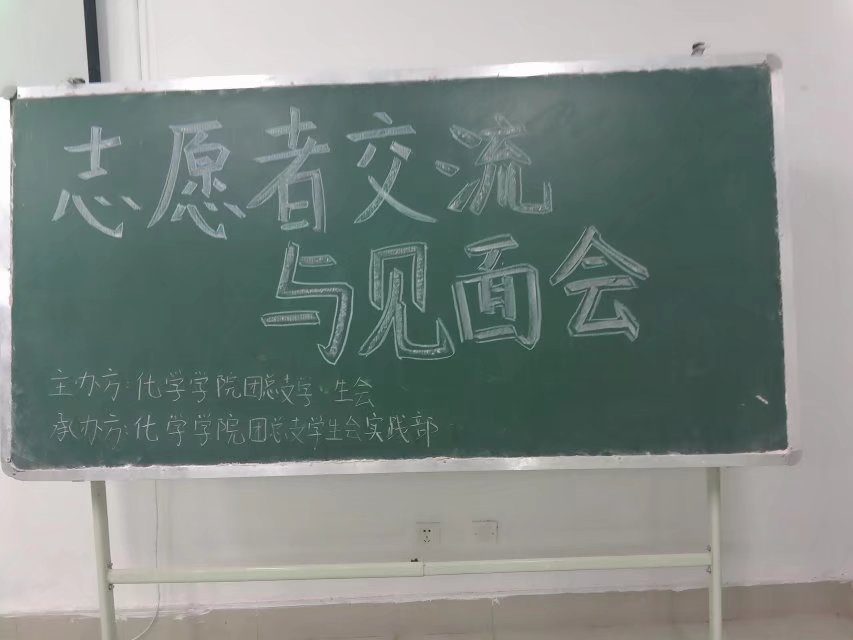 志愿者交流
与见面会
主办方:化学学院团总支学生会
承办方:化学学院团总支学生会实践部